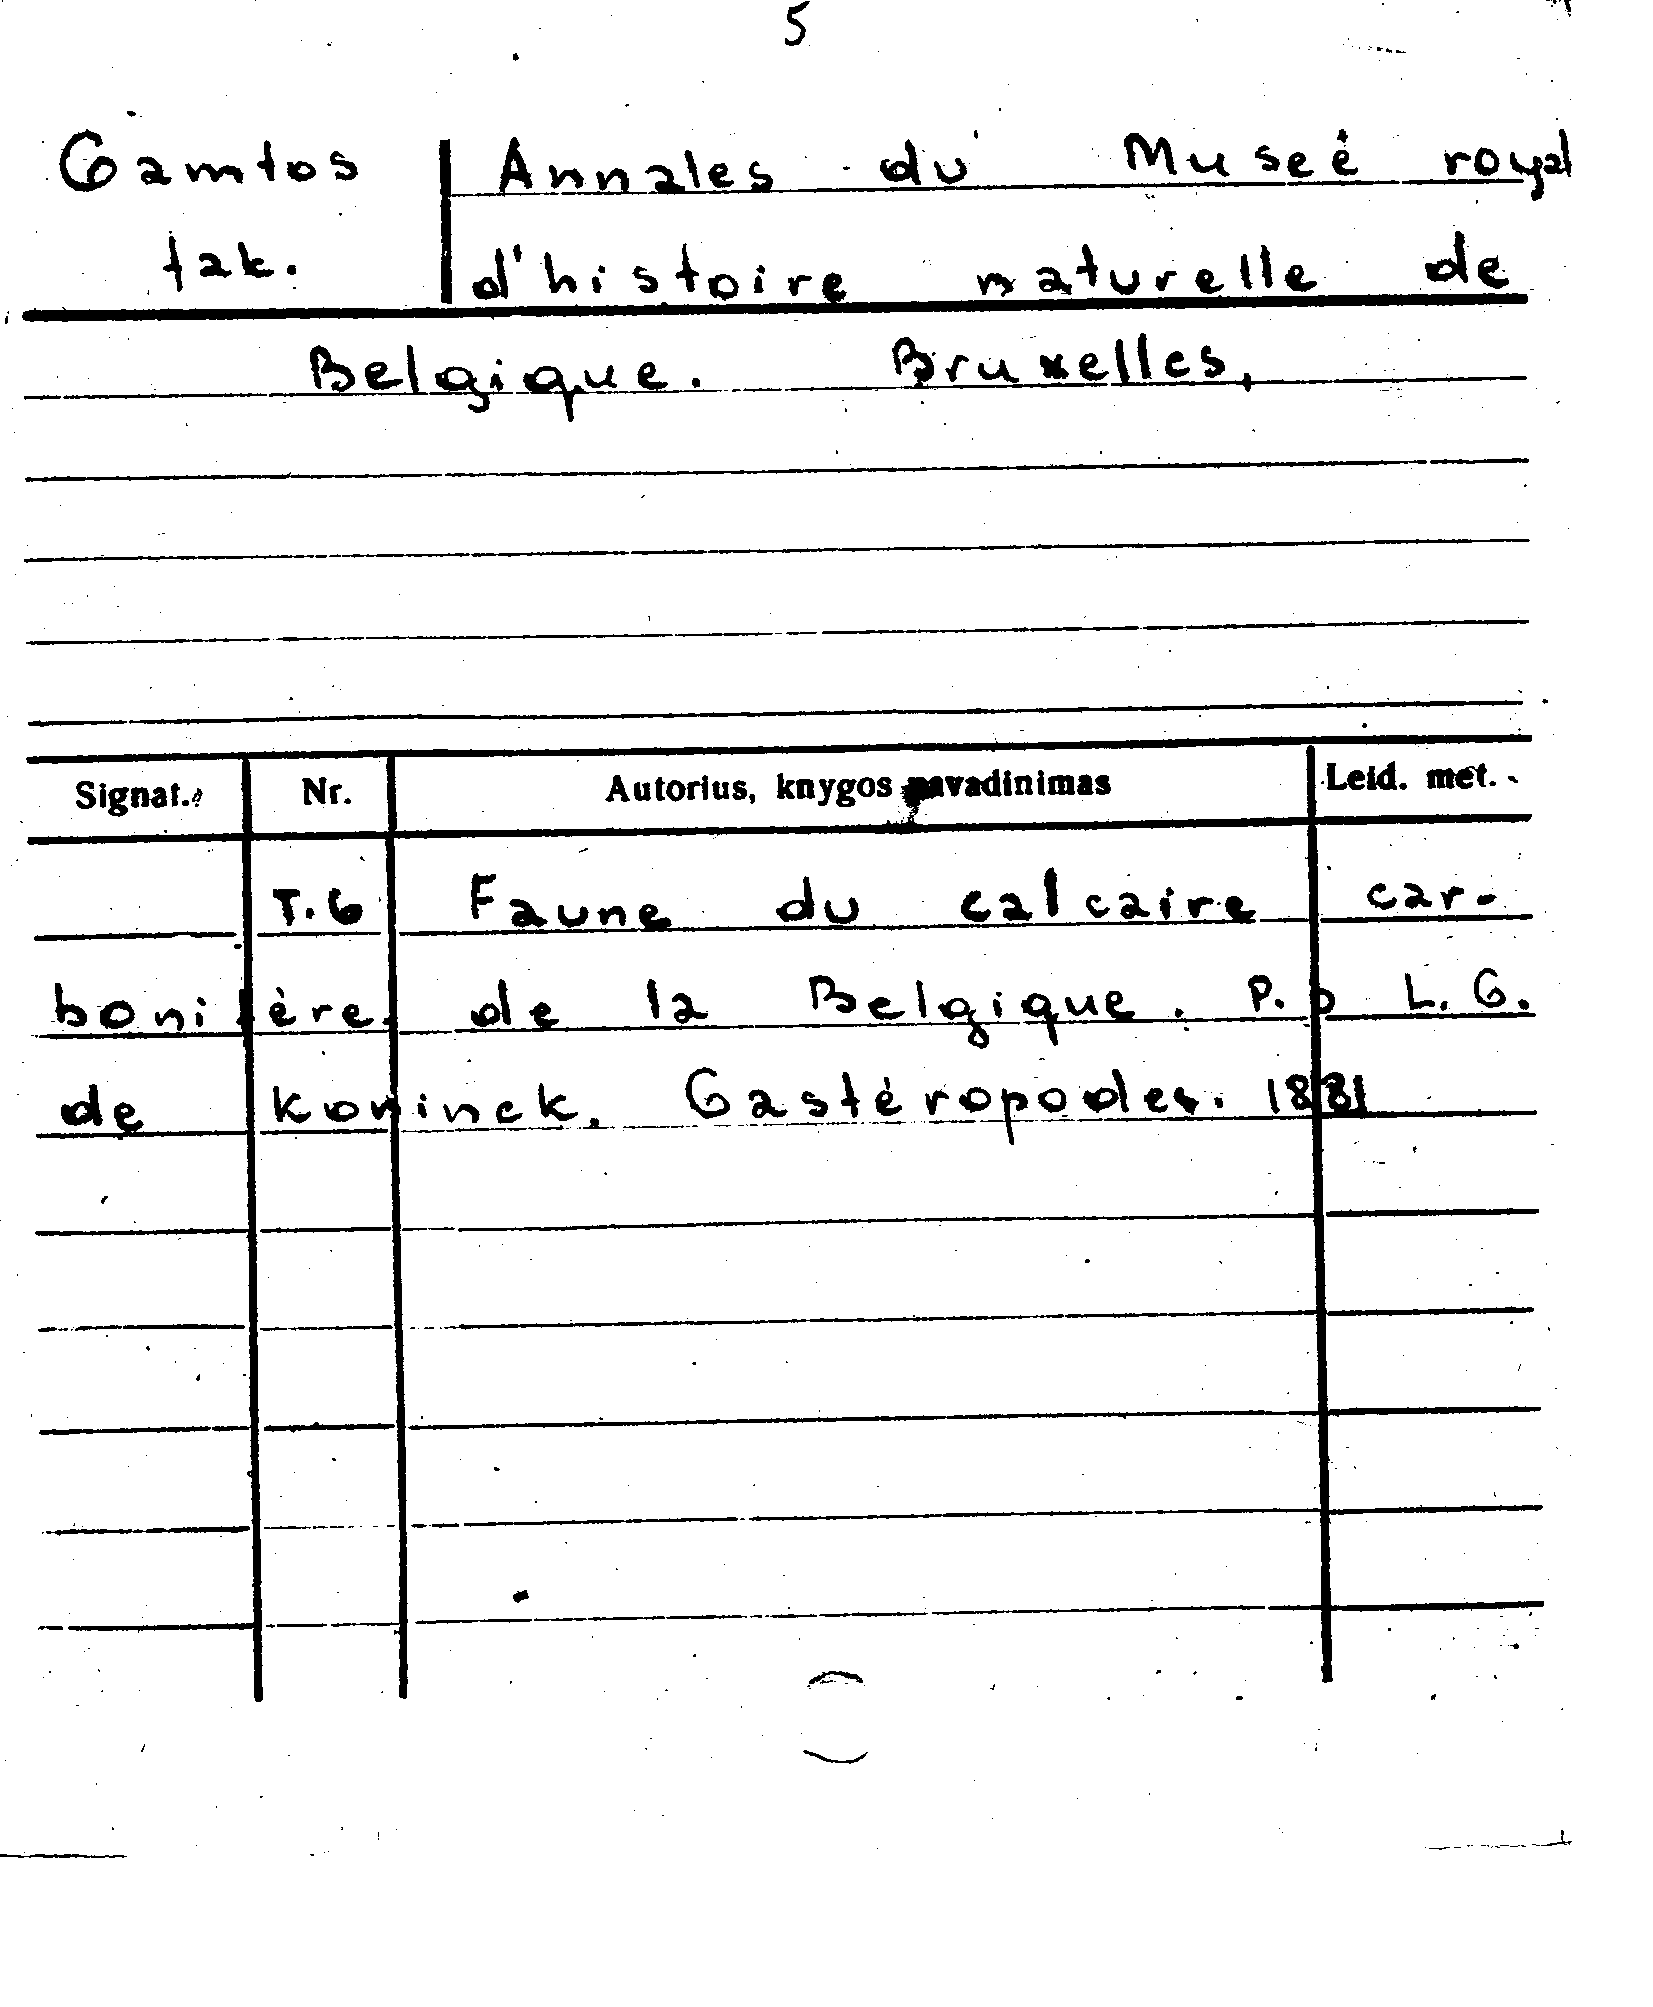 5
Gamtos Annales du Museé royal
tak. d'histoire naturelle de
Belgique. Bruxelles,
Signat. Nr. Autorius, knygos pavadinimas Leid. met.
T.6 Faune du calcaire car-
bonifère de la Belgique. P. p L. G.
de Koninck. Gastéropodes. 1881